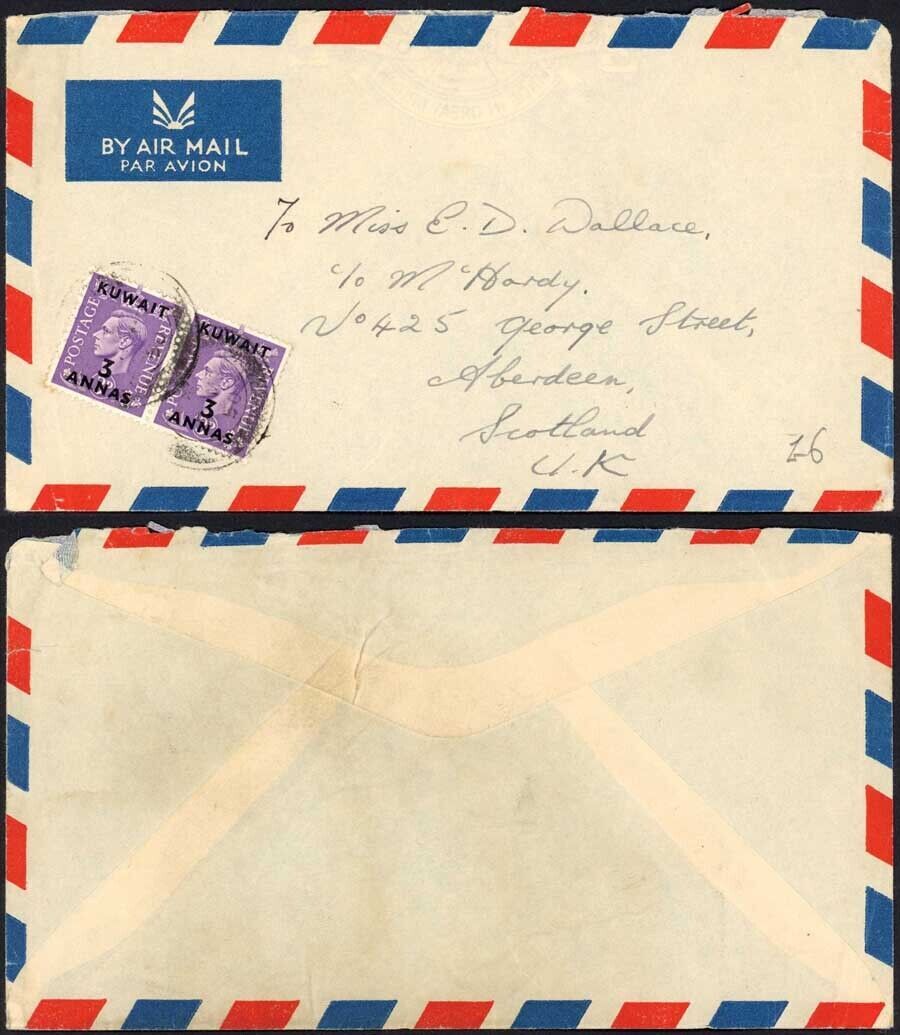 BY AIR MAIL
PAR AVION
To Miss E. D. Wallace,
c/o McHardy.
No 425 George Street,
Aberdeen,
Scotland
U.K
KUWAIT
POSTAGE
REVENUE
3
ANNAS
KUWAIT
REVENUE
3
ANNAS